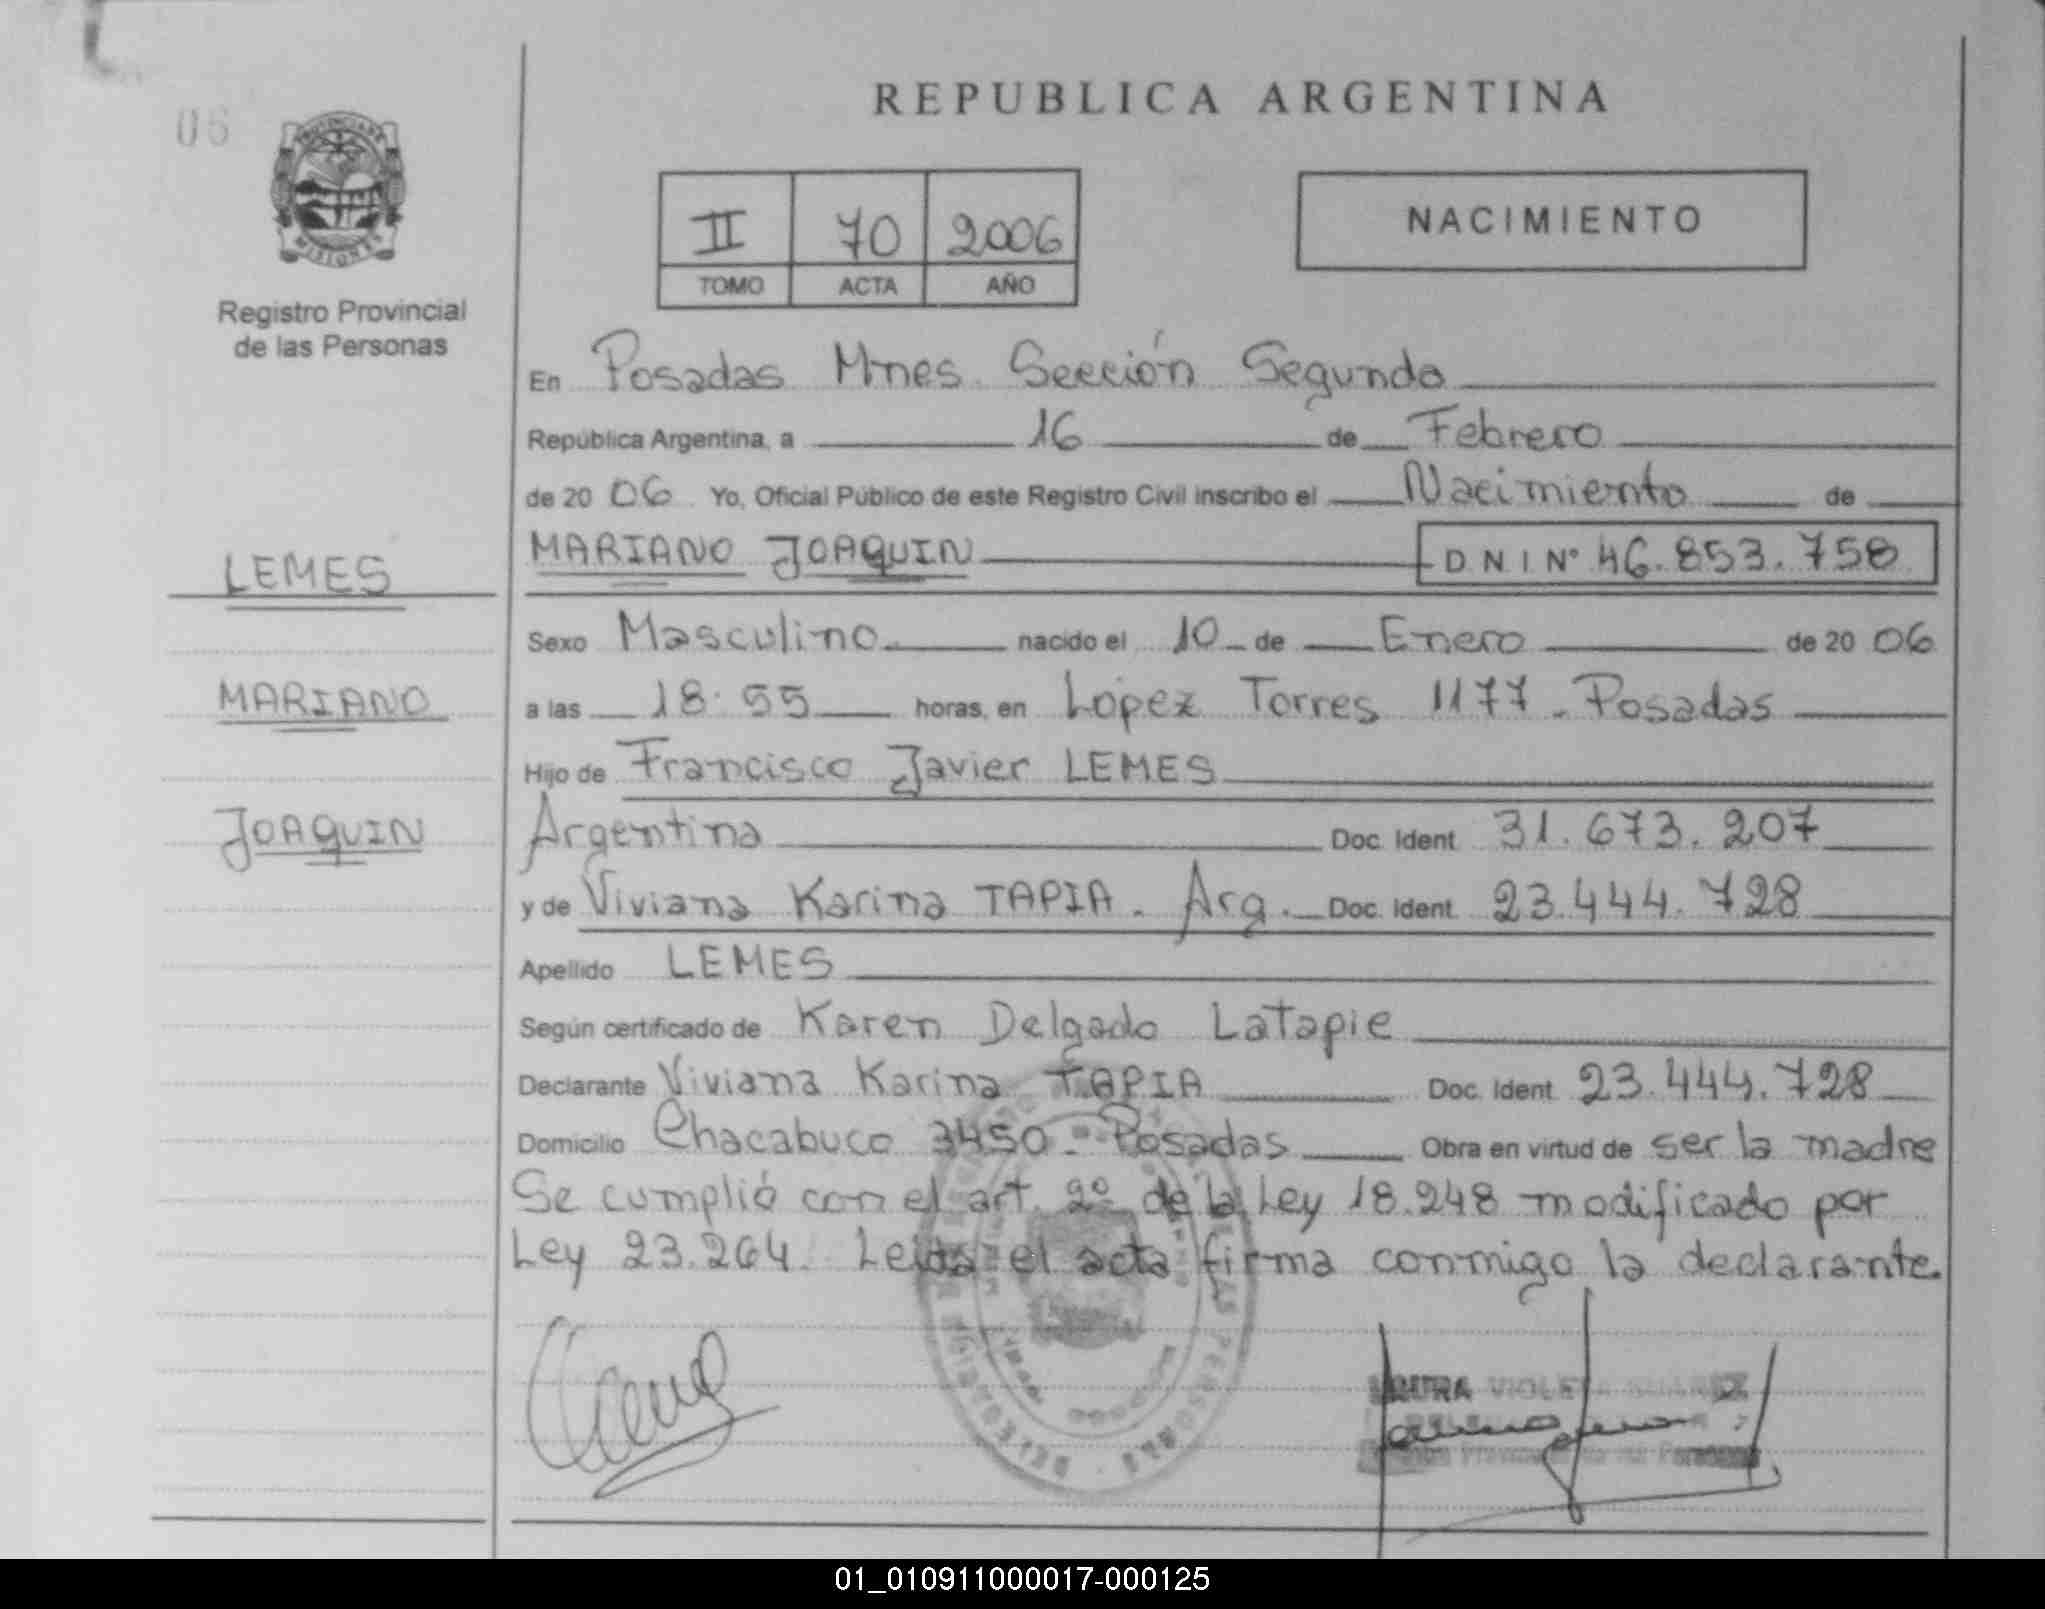 06
PROVINCIA DE
MISIONES
Registro Provincial
de las Personas
REPUBLICA ARGENTINA
II 70 2006
TOMO ACTA AÑO
NACIMIENTO
En Posadas Mnes. Sección Segunda
República Argentina, a 16 de Febrero
de 20 06 Yo, Oficial Público de este Registro Civil inscribo el Nacimiento de
MARIANO JOAQUIN D.N.I Nº 46.853.758
LEMES
Sexo Masculino nacido el 10 de Enero de 20 06
MARIANO
a las 18:55 horas, en López Torres 1177 - Posadas
Hijo de Francisco Javier LEMES
JOAQUIN
Argentina Doc. Ident. 31.673.207
y de Viviana Karina TAPIA. Arg. Doc. Ident. 23.444.728
Apellido LEMES
Según certificado de Karen Delgado Latapie
Declarante Viviana Karina TAPIA Doc. Ident. 23.444.728
Domicilio Chacabuco 3450 - Posadas Obra en virtud de ser la madre
Se cumplió con el art. 2º de la Ley 18.248 modificado por
Ley 23.264. Leída el acta firma conmigo la declarante.
LAURA VIOLETA SUAREZ
01_010911000017-000125